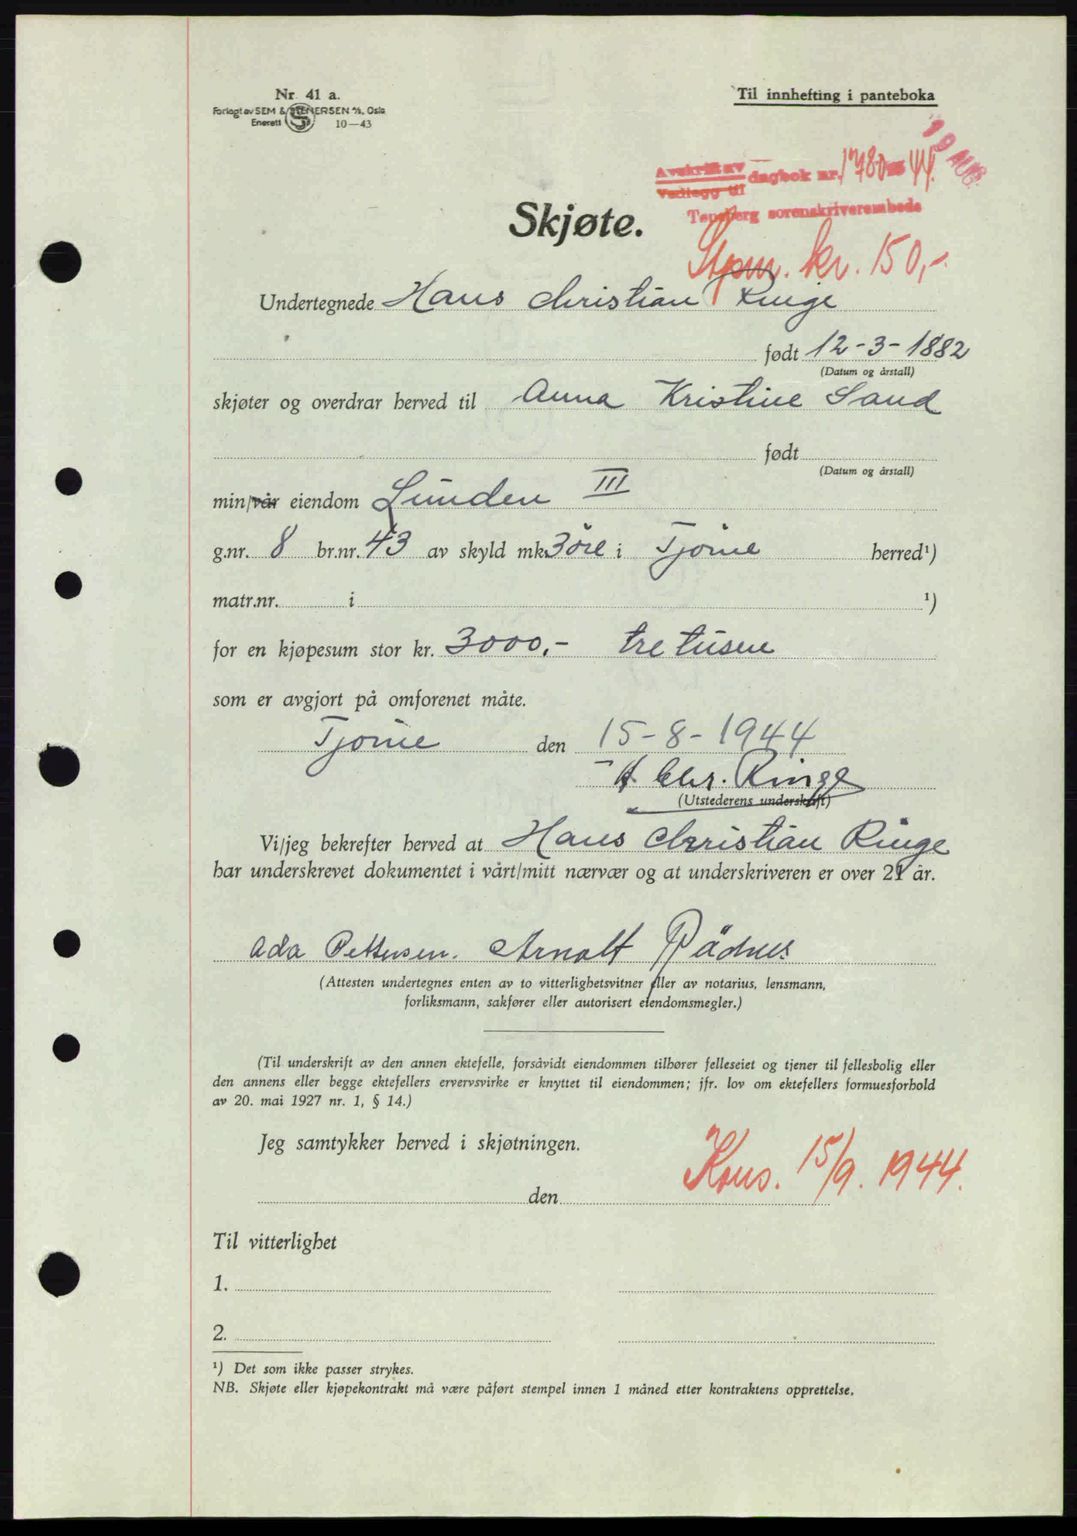 Nr. 41 a.
Forlagt av SEM & STENERSEN A/S, Oslo
Enerett 10—43
Til innhefting i panteboka
19 AUG.
Avskrift av
Vedlegg til
dagbok nr. 1780 44.
Tønsberg sorenskriverembede
Skjøte.
Stpm. kr. 150,-
Undertegnede Hans Christian Ringe
født 12-3-1882
(Datum og årstall)
skjøter og overdrar herved til Anna Kristine Sand
født
(Datum og årstall)
min/vår eiendom Lunden III
g.nr. 8 br.nr. 43 av skyld mk. 3 øre i Tjøme herred¹)
matr.nr. i ¹)
for en kjøpesum stor kr. 3000,- tre tusen
som er avgjort på omforenet måte.
Tjøme den 15-8-1944
H Chr. Ringe
(Utstederens underskrift)
Vi/jeg bekrefter herved at Hans Christian Ringe
har underskrevet dokumentet i vårt/mitt nærvær og at underskriveren er over 21 år.
Ada Pettersen. Arnolf
(Attesten undertegnes enten av to vitterlighetsvitner eller av notarius, lensmann,
forliksmann, sakfører eller autorisert eiendomsmegler.)
(Til underskrift av den annen ektefelle, forsåvidt eiendommen tilhører felleseiet og tjener til fellesbolig eller
den annens eller begge ektefellers ervervsvirke er knyttet til eiendommen; jfr. lov om ektefellers formuesforhold
av 20. mai 1927 nr. 1, § 14.)
Jeg samtykker herved i skjøtningen.
Kons. 15/9. 1944.
den
Til vitterlighet
1.
2.
¹) Det som ikke passer strykes.
NB. Skjøte eller kjøpekontrakt må være påført stempel innen 1 måned etter kontraktens opprettelse.